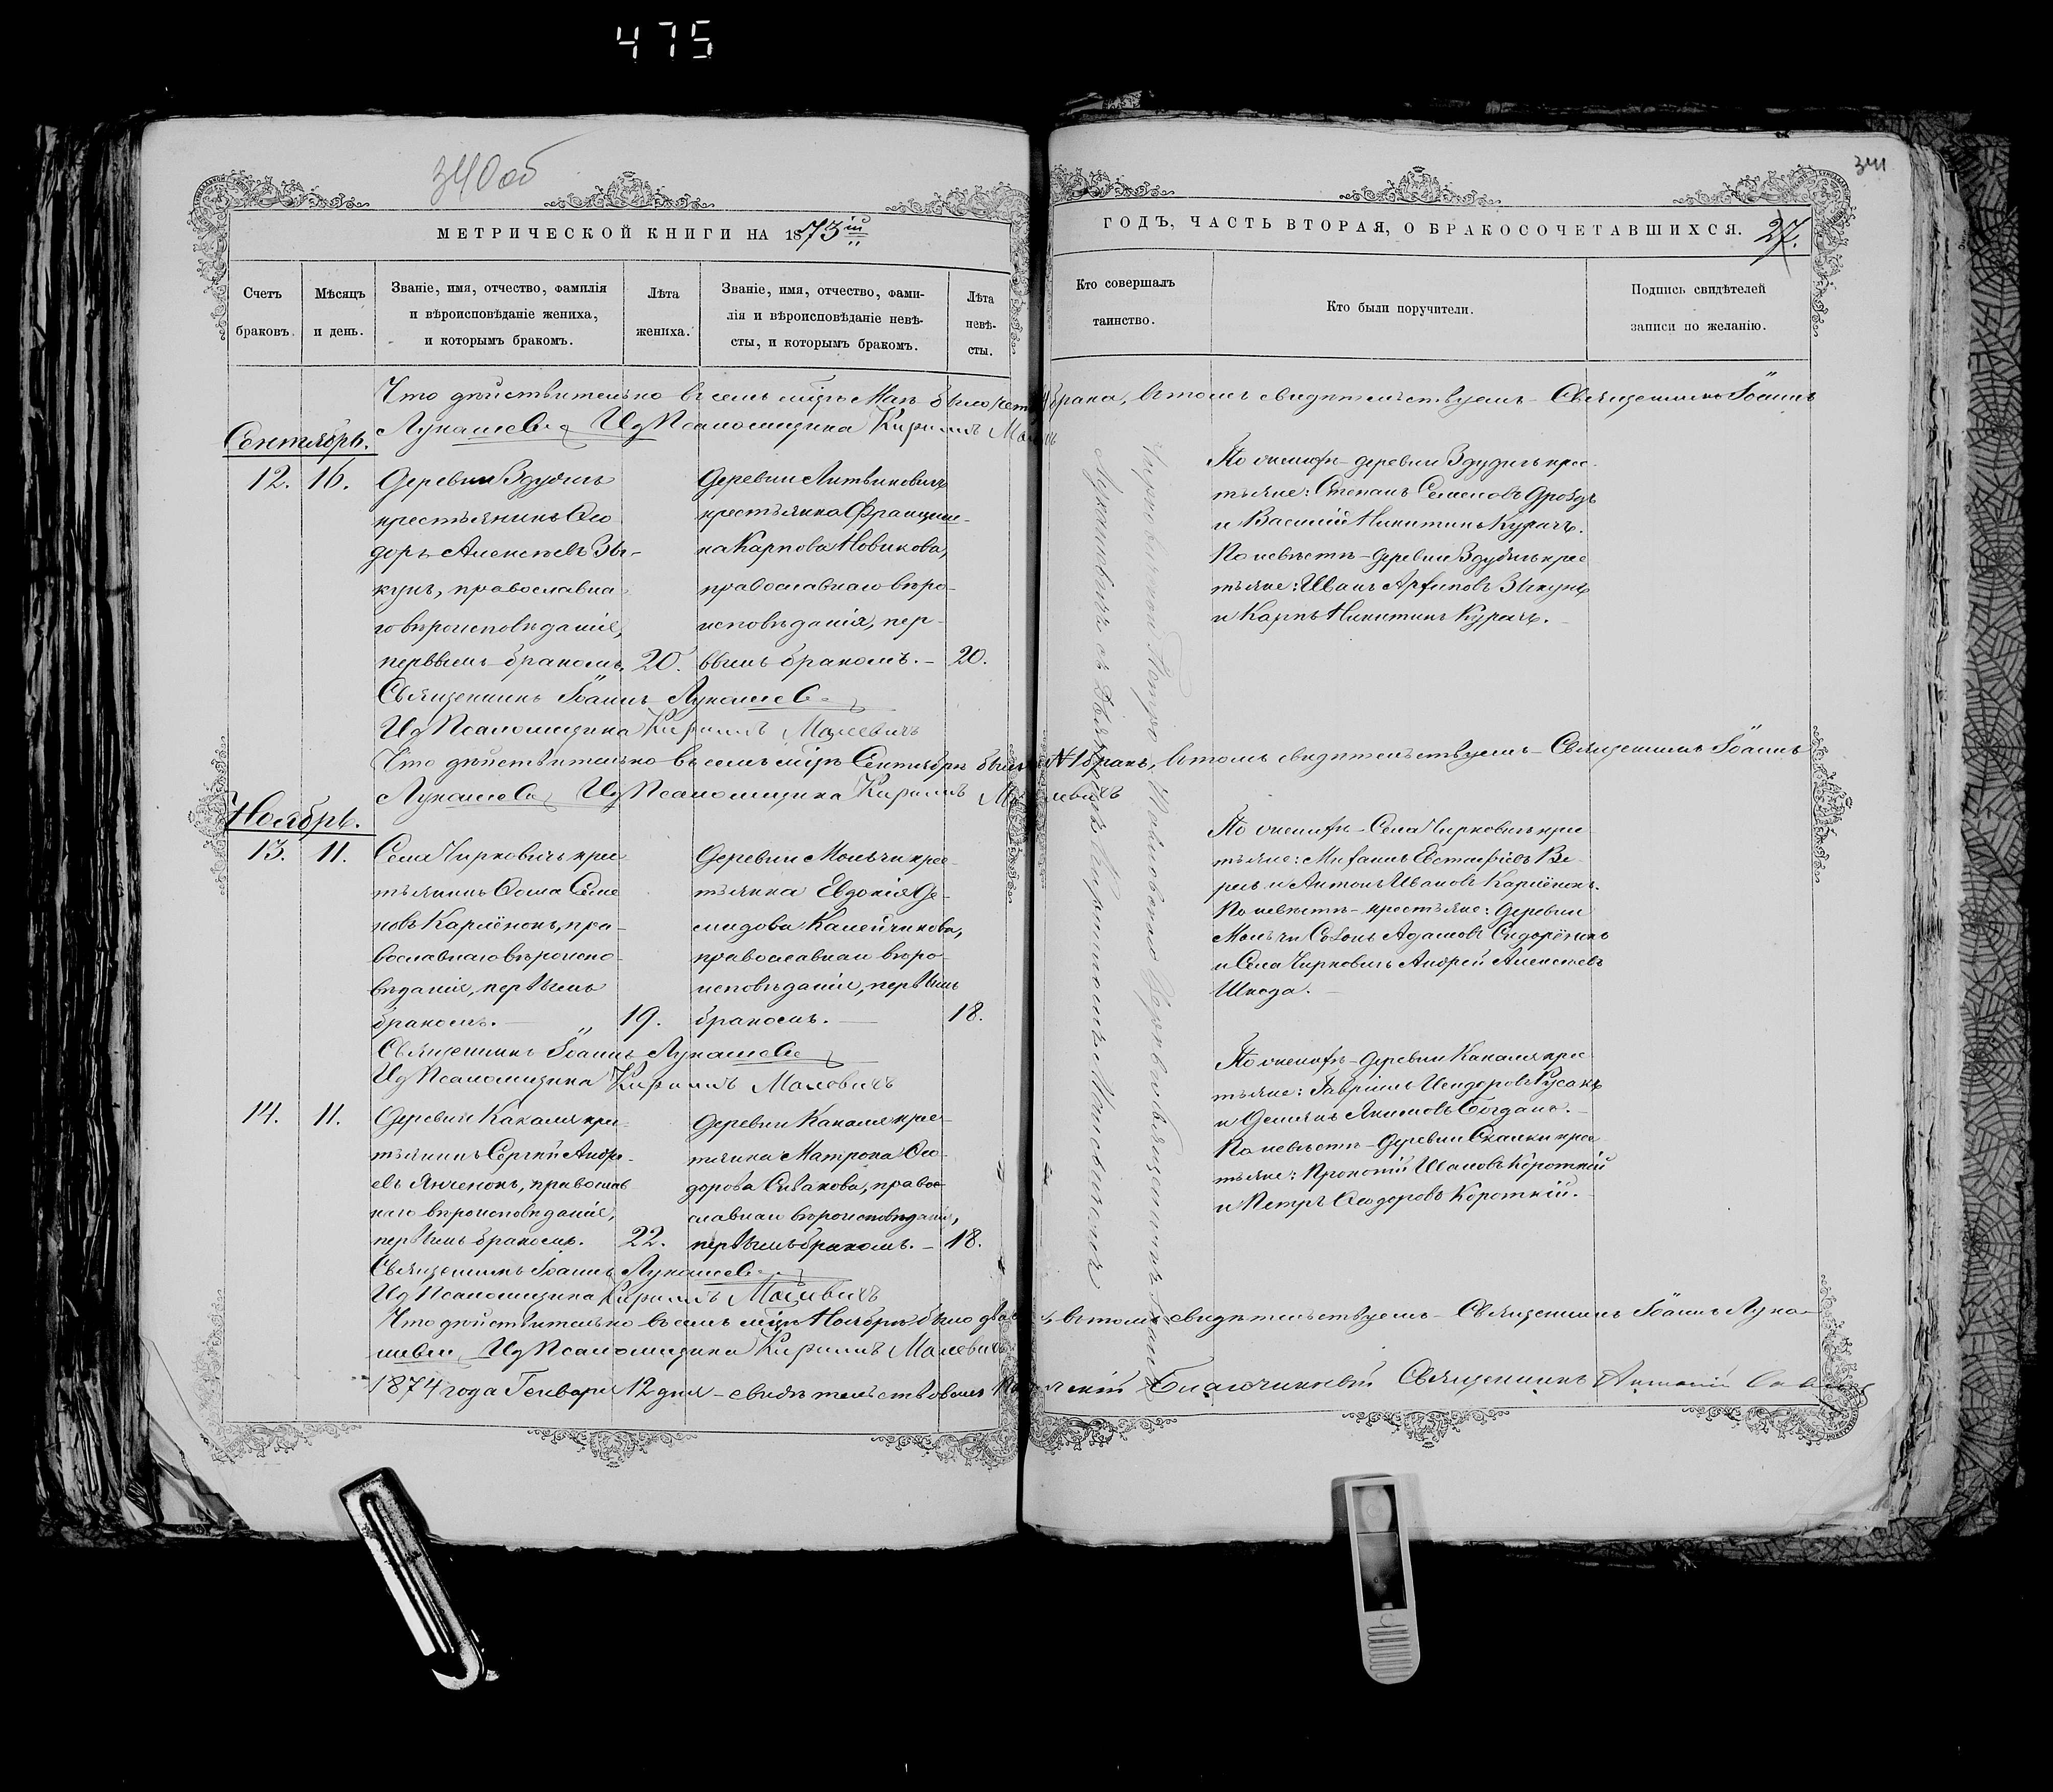 475
340об
341
МЕТРИЧЕСКОЙ КНИГИ НА 1873й
ГОДЪ, ЧАСТЬ ВТОРАЯ, О БРАКОСОЧЕТАВШИХСЯ.
27.
Счетъ
браковъ.
Мѣсяцъ
и день.
Званіе, имя, отчество, фамилія
и вѣроисповѣданіе жениха,
и которымъ бракомъ.
Лѣта
жениха.
Званіе, имя, отчество, фами-
лія и вѣроисповѣданіе невѣ-
сты, и которымъ бракомъ.
Лѣта
невѣ-
сты.
Кто совершалъ
таинство.
Кто были поручители.
Подпись свидѣтелей
записи по желанію.
Что дѣйствительно въ семъ мцѣ Маѣ было брака, въ томъ свидѣтельствуемъ – Священникъ Іоаннъ
Лукашевъ Ид Псаломщика Кириллъ
Сентябрь.
12. 16.
Деревни Вдудичъ
крестьянинъ Ѳео
доръ Алексѣевъ Зы-
кунъ, православна
го вѣроисповѣданія,
первымъ бракомъ. 20.
Деревни Литвиновичъ
крестьянка Францишка
Карпова Новикова,
православнаго вѣро-
исповѣданія, пер-
вымъ бракомъ. – 20.
По женихѣ – деревни Вдудичъ крес
тьяне: Степанъ Семеновъ Дроздъ
и Василій Никитинъ Курачъ.
По невѣстѣ – деревни Вдудичъ крес
тьяне: Иванъ Архиповъ Зыкунъ
и Карпъ Никитинъ Курачъ. –
Священникъ Іоаннъ Лукашевъ
Ид Псаломщика Кириллъ Малевичъ
Что дѣйствительно въ семъ мцѣ Сентябрѣ былъ №1 бракъ, въ томъ свидѣтельствуемъ – Священникъ Іоаннъ
Лукашевъ Ид Псаломщика Кириллъ Малевичъ
Ноябрь.
13. 11.
Села Чирковичъ крес
тьянинъ Ѳома Семе
новъ Карпёнокъ, пра-
вославнаго вѣроиспо-
вѣданія, первымъ
бракомъ. – 19.
Деревни Мольчи крес-
тьянка Евдокія Де-
мидова Калейчикова,
православнаго вѣро-
исповѣданія, первымъ
бракомъ. – 18.
По женихѣ – Села Чирковичъ крес
тьяне: Михаилъ Евстафіевъ Ве-
ресъ и Антонъ Ивановъ Карпёнокъ.
По невѣстѣ – крестьяне: Деревни
Мольчи Созонъ Адамовъ Сидорёнокъ
и Села Чирковичъ Андрей Алексѣевъ
Шкода. –
Священникъ Іоаннъ Лукашевъ
Ид Псаломщика Кириллъ Малевичъ
14. 11.
Деревни Какаля крес
тьянинъ Сергѣй Андре-
евъ Янченокъ, православ
наго вѣроисповѣданія,
первымъ бракомъ. 22.
Деревни Какаля крес-
тьянка Матрона Ѳео-
дорова Сивакова, правос-
лавнаго вѣроисповѣданія,
первымъ бракомъ. – 18.
По женихѣ – деревни Какаля крес
тьяне: Гавріилъ Исидоровъ Русакъ
и Демьянъ Якимовъ Богданъ. –
По невѣстѣ – деревни Скалки крес
тьяне: Прокопій Ивановъ Короткій
и Петръ Ѳеодоровъ Короткій. –
Священникъ Іоаннъ Лукашевъ
Ид Псаломщика Кириллъ Малевичъ
Что дѣйствительно въ семъ мцѣ Ноябрѣ было два въ томъ свидѣтельствуемъ – Священникъ Іоаннъ Лука-
шевъ, Ид Псаломщика Кириллъ Малевичъ
1874 года Генваря 12 дня – свидѣтельствовалъ Благочинный Священникъ Антоній